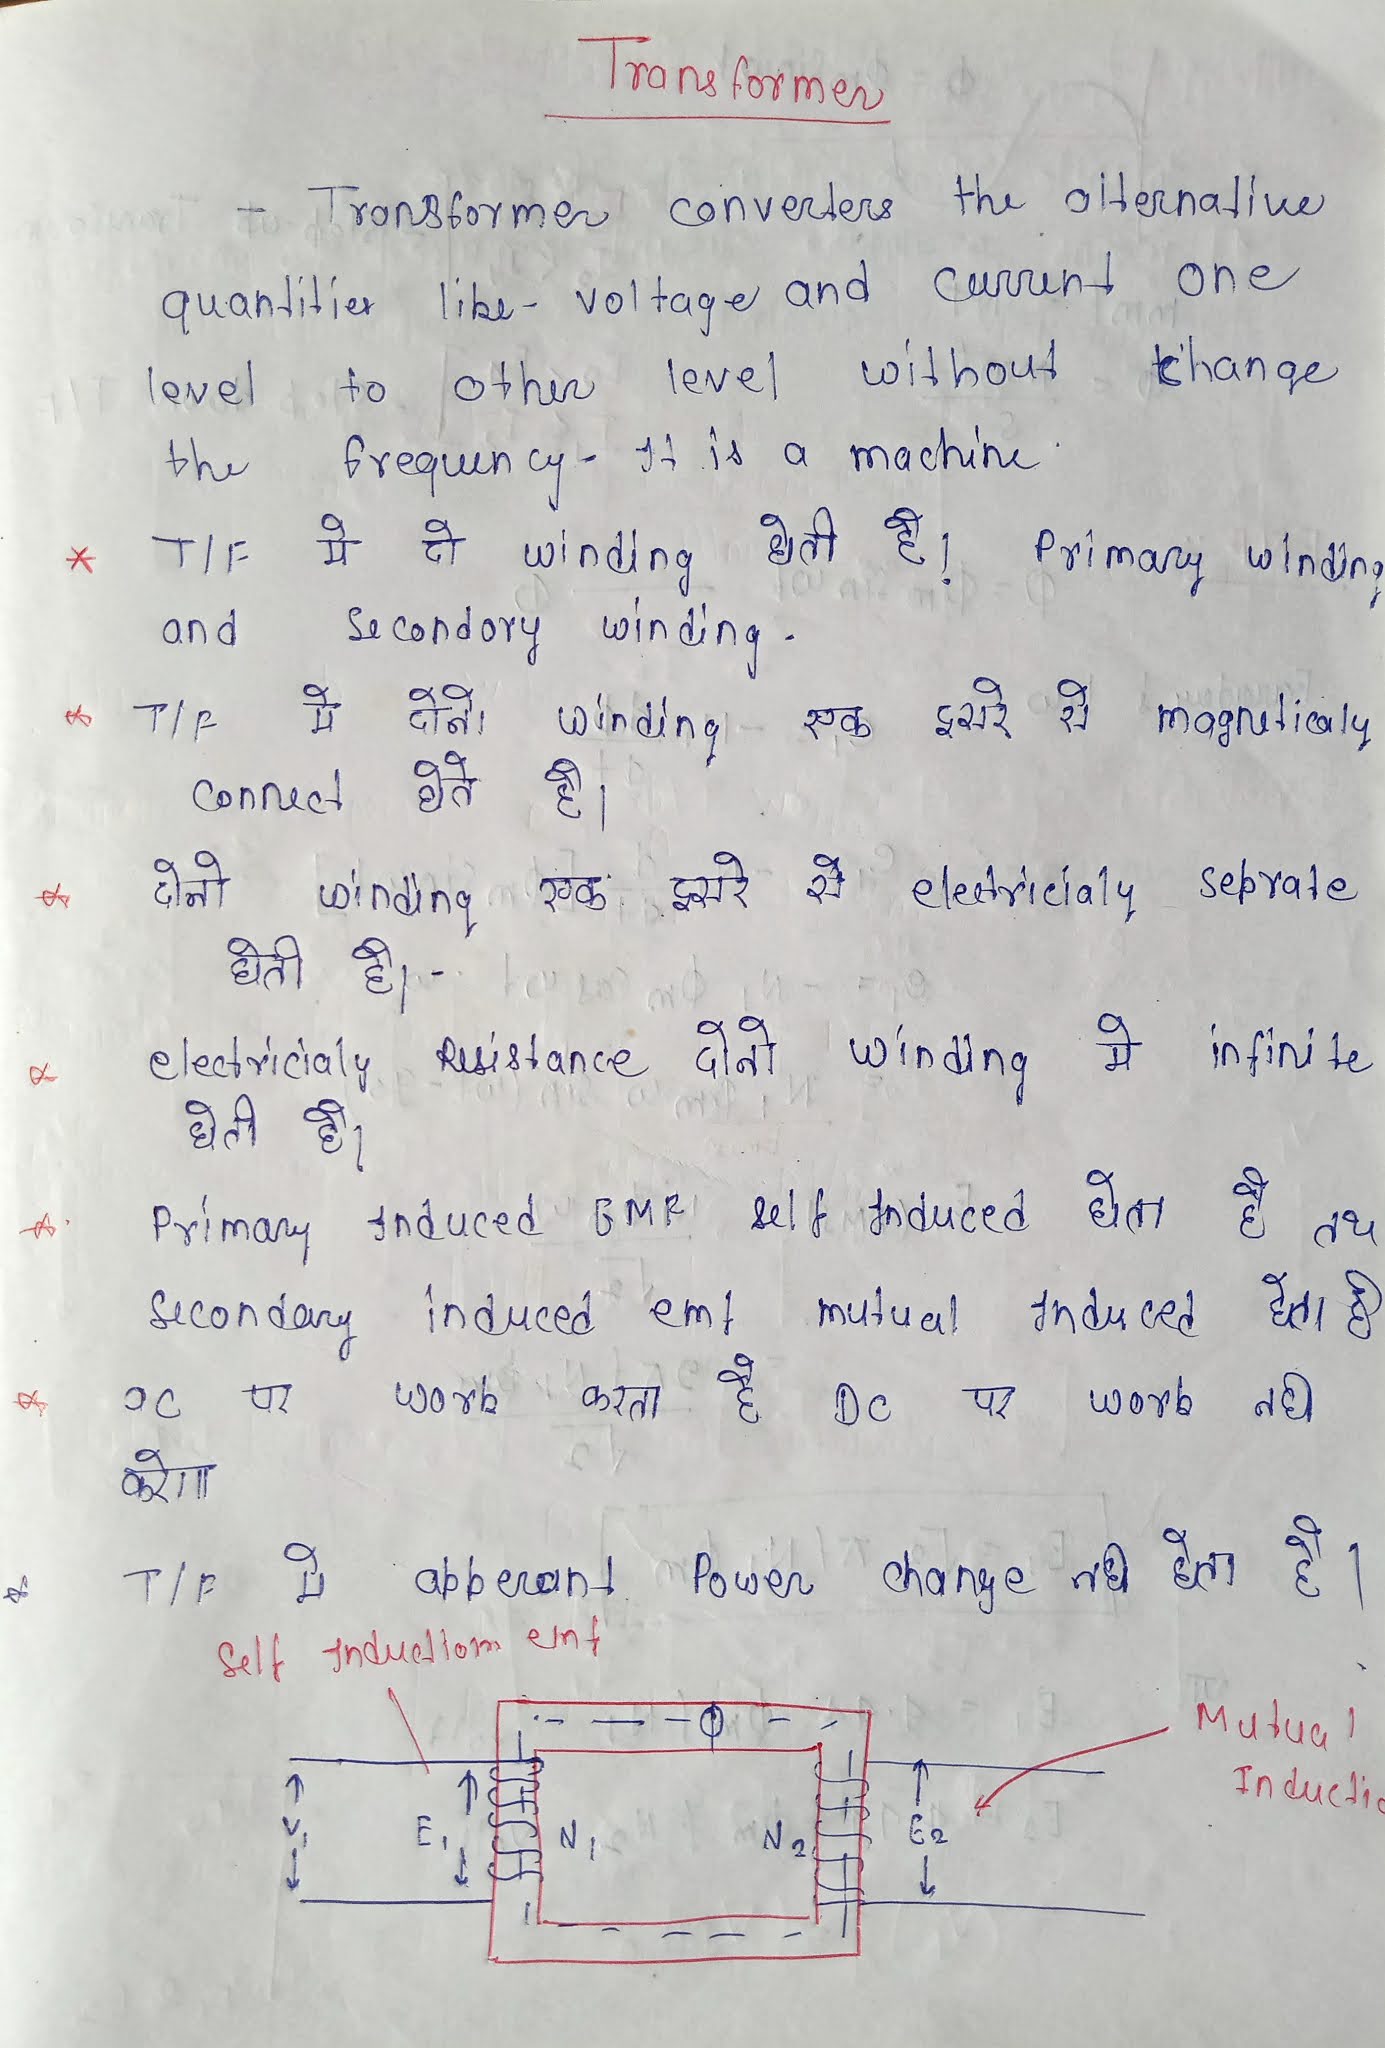 Transformer
- Transformer converters the alternative
quantities like - voltage and current one
level to other level without change
the frequency - It is a machine.
* T/F मे दो winding होती है! Primary winding
and secondory winding.
* T/F मे दोनो winding एक दुसरे से magneticaly
connect होते है।
* दोनो winding एक दुसरे से electricialy seprate
होती है। -
* electricialy Resistance दोनो winding मे infinite
होती है।
* Primary Induced EMF self Induced होता है तथ
secondary induced emf mutual Induced होता है
* AC पर work करता है DC पर work नही
करेगा
* T/F मे apperant Power change नही होता है।
Self Induction emf
Mutual
Inductio
ϕ
V1 E1 N1 N2 E2